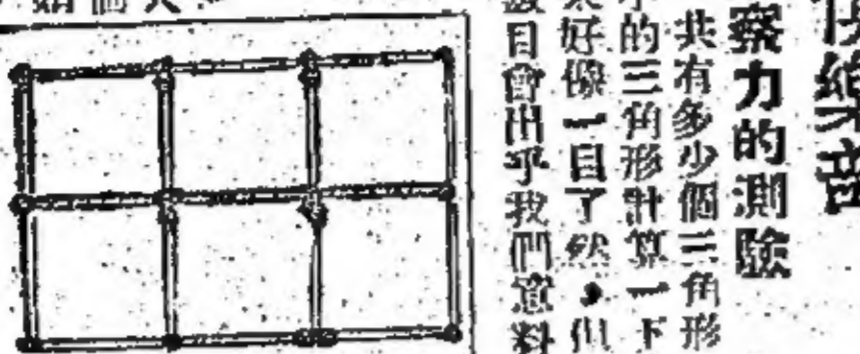 察力的測驗
共有多少個三角形
的三角形計算一下
好像一目了然,但
數目會出乎我們意料
個